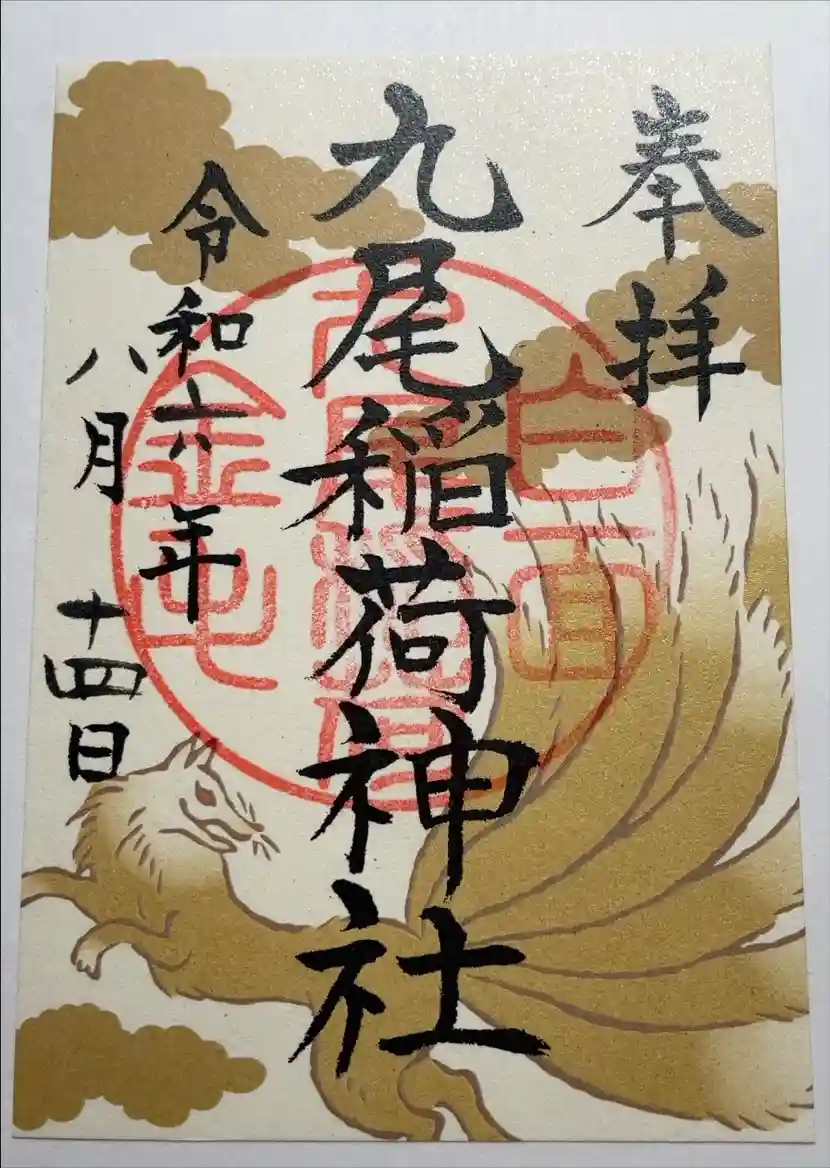 奉拝
九尾稲荷神社
令和六年
八月十四日